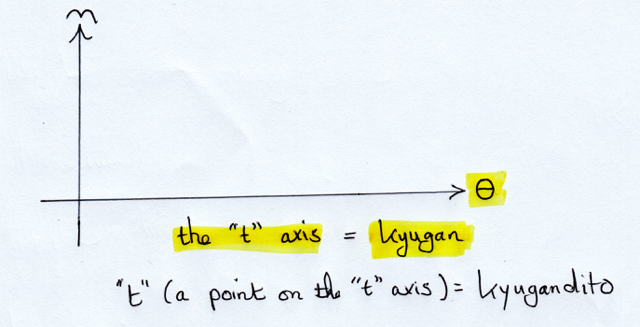 θ
the "t" axis = kyugan
"t" (a point on the "t" axis) = kyugandito